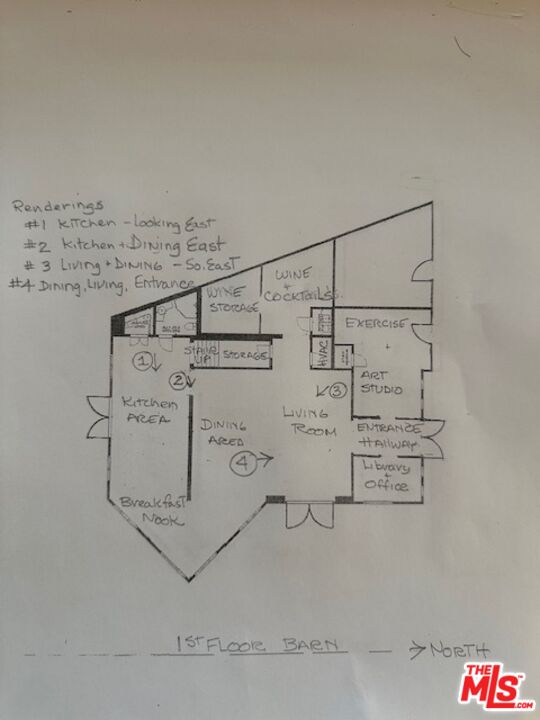 Renderings
#1 Kitchen - Looking East
#2 Kitchen + Dining East
#3 Living + Dining - So. East
#4 Dining, Living, Entrance
WINE
+
COCKTAILS
WINE
STORAGE
EXERCISE
+
ART
STUDIO
STAIR
UP
STORAGE
HVAC
1
2
3
KITCHEN
AREA
DINING
AREA
LIVING
ROOM
4
ENTRANCE
HALLWAY
Library
+
Office
Breakfast
Nook
1ST FLOOR BARN
NORTH
THE
MLS.COM